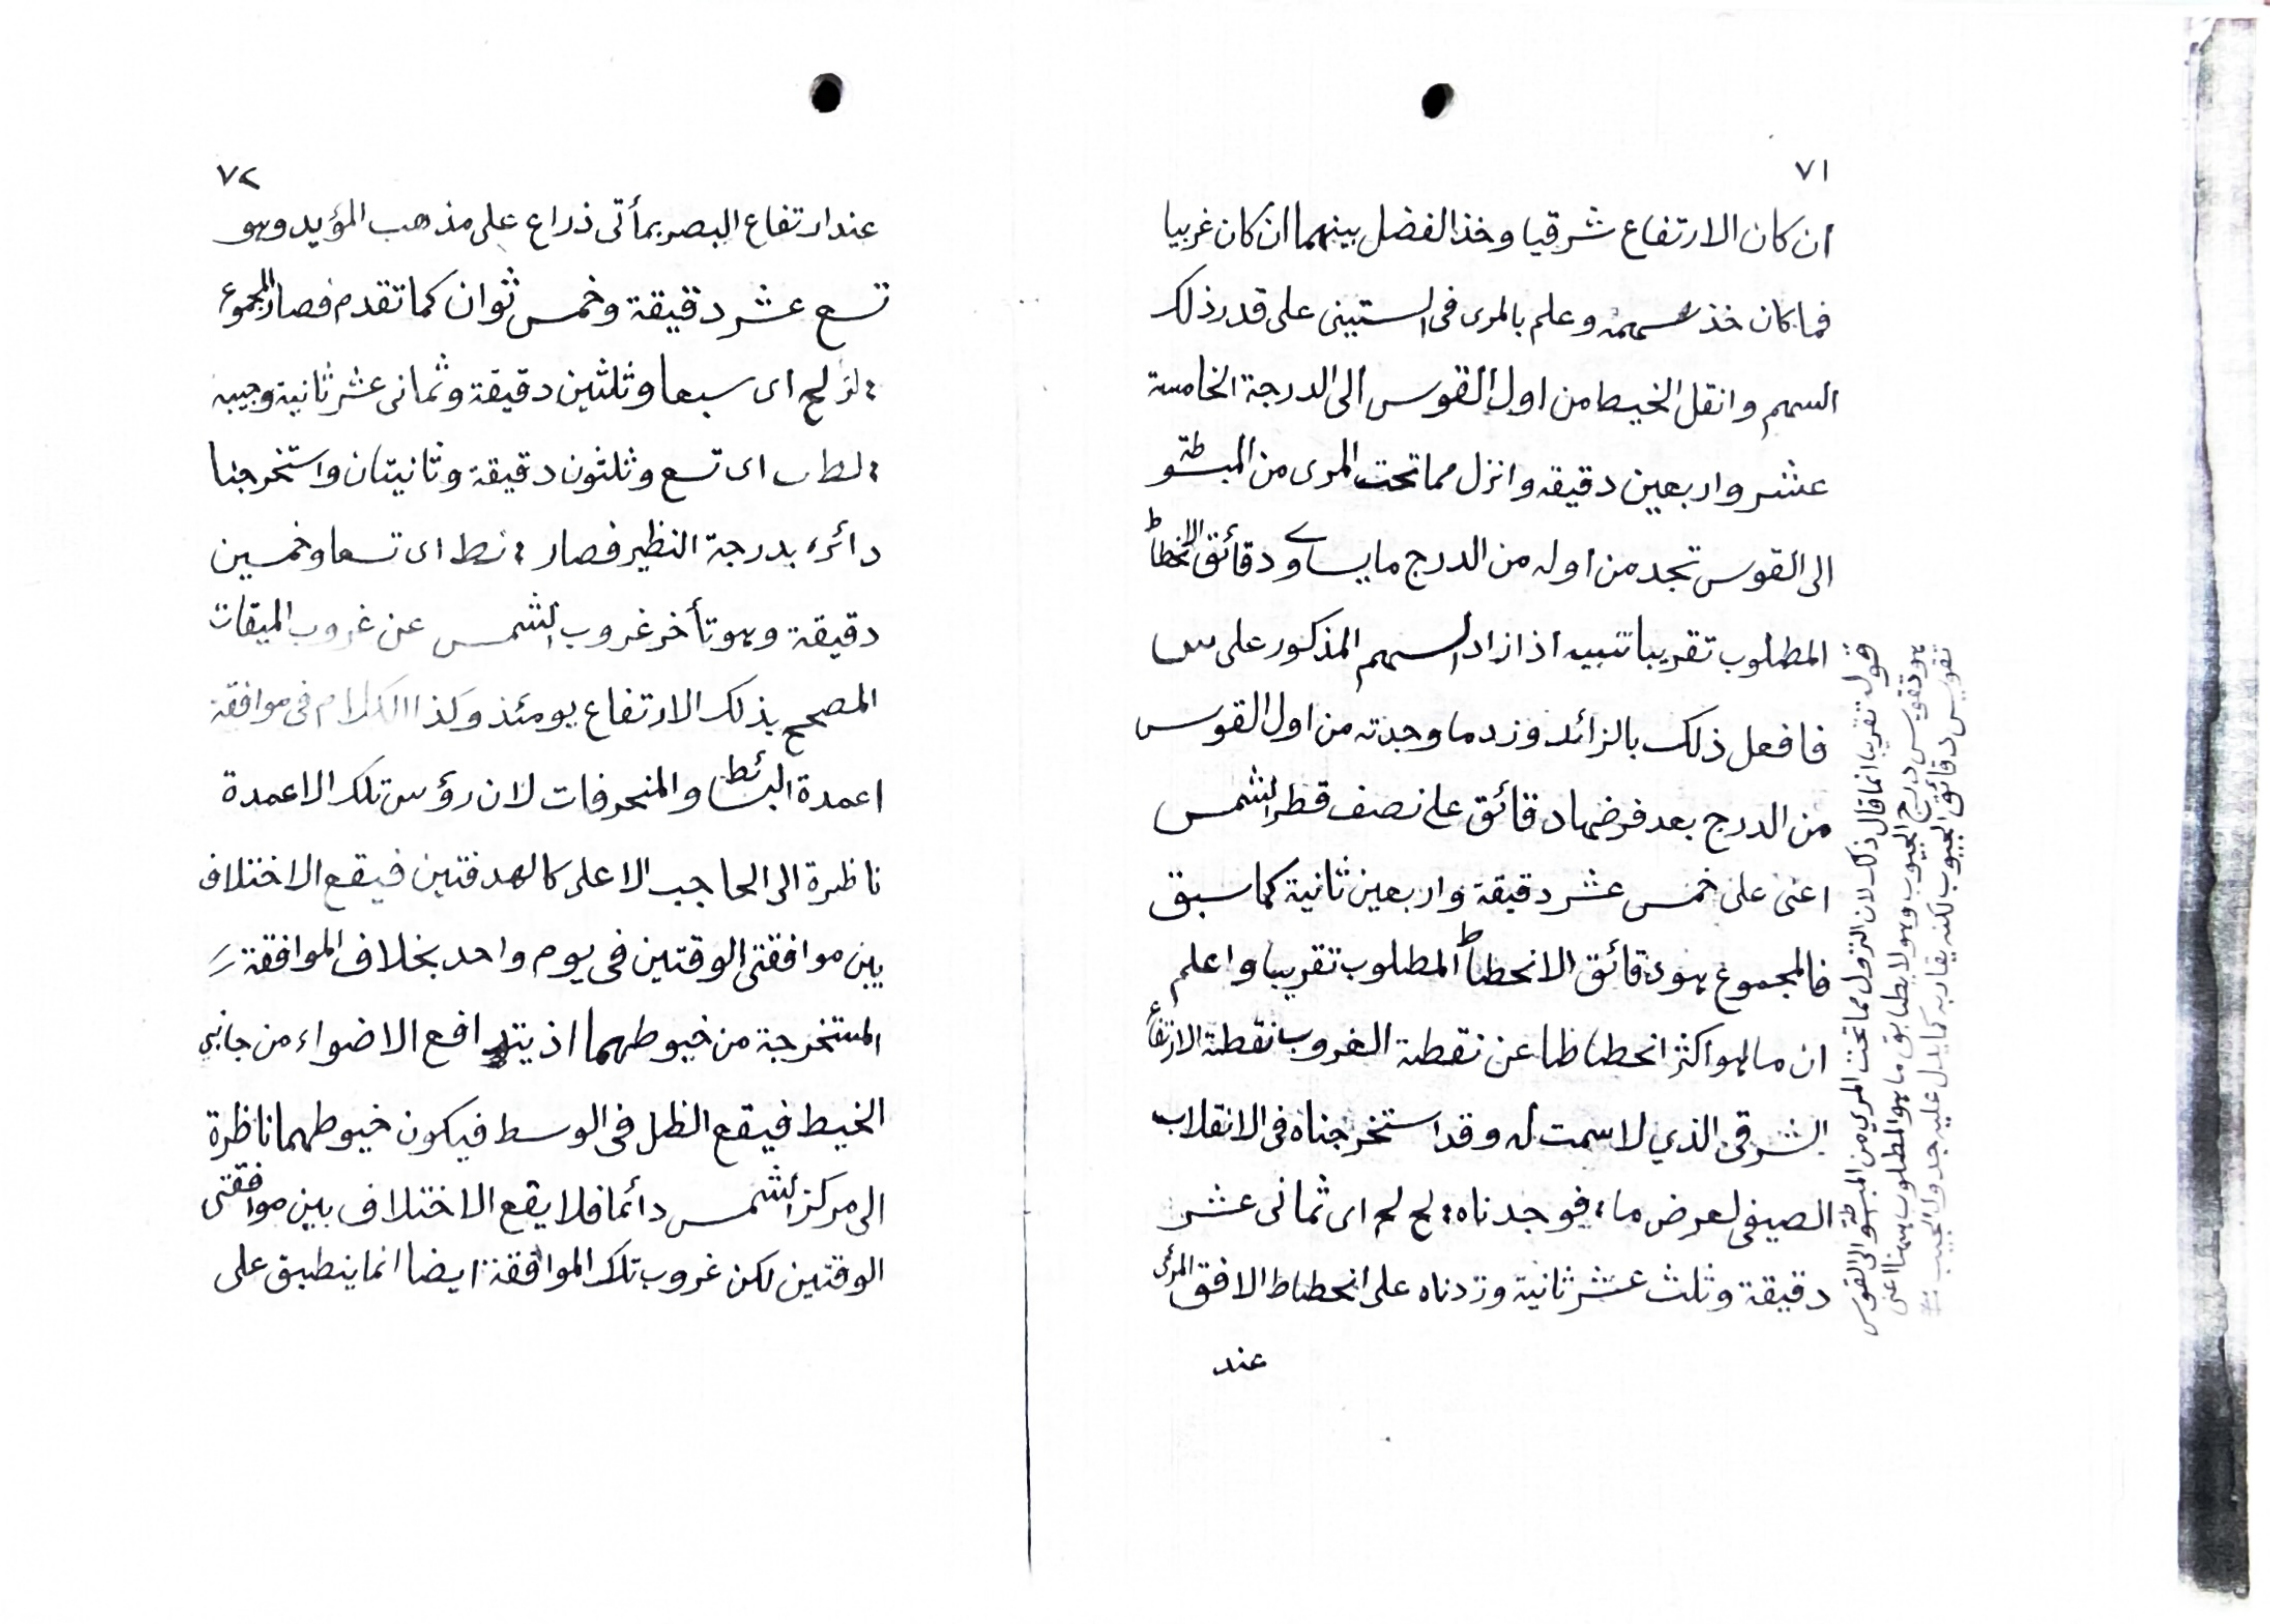 ٧١
ان كان الارتفاع شرقيا وخذ الفضل بينهما ان كان غربيا
فما كان خذ سهمه وعلم بالمرى فى الستينى على قدر ذلك
السهم وانقل الخيط من اول القوس الى الدرجة الخامسة
عشر واربعين دقيقة وانزل مما تحت المرى من المبسوطة
الى القوس تجد من اوله من الدرج ما يساوى دقائق الانحطاط
المطلوب تقريبا تنبيه اذا زاد السهم المذكور على س
فافعل ذلك بالزائد وزد ما وجدته من اول القوس
من الدرج بعد فرضها دقائق على نصف قطر الشمس
اعنى على خمس عشر دقيقة واربعين ثانية كما سبق
فالمجموع هو دقائق الانحطاط المطلوب تقريبا واعلم
ان ما هو اكثر انحطاطا عن نقطة الغروب نقطة الارتفاع
الشرقى الذي لا سمت له وقد استخرجناه فى الانقلاب
الصيفى لعرض ماء فوجدناه : لح لح اى ثمانى عشر
دقيقة وثلث عشر ثانية وزدناه على انحطاط الافق المرئى
عند
قوله تقريبا انما قال ذلك لان النزول مما تحت المري من المبسوطة الى القوس
هو تقويس درج الجيوب وهو لا يطابق ما هو المطلوب هنا اعنى
تقويس دقائق الجيوب لكنه يقاربه كما يدل عليه جدول الجيب
٧٢
عند ارتفاع البصر بمأتى ذراع على مذهب المؤيد وهو
تسع عشر دقيقة وخمس ثوان كما تقدم فصار المجموع
: لز لح اى سبعا وثلثين دقيقة وثمانى عشر ثانية وجيبه
: لط ب اى تسع وثلثون دقيقة وثانيتان واستخرجنا
دائره بدرجة النظير فصار : نط اى تسعا وخمسين
دقيقة وهو تأخر غروب الشمس عن غروب الميقات
المصحح بذلك الارتفاع يومئذ وكذا الكلام فى موافقة
اعمدة البسائط والمنحرفات لان رؤس تلك الاعمدة
ناظرة الى الحاجب الاعلى كالهدفتين فيقع الاختلاف
بين موافقتى الوقتين فى يوم واحد بخلاف الموافقة
المستخرجة من خيوطهما اذ يتدافع الاضواء من جانبى
الخيط فيقع الظل فى الوسط فيكون خيوطهما ناظرة
الى مركز الشمس دائما فلا يقع الاختلاف بين موافقتى
الوقتين لكن غروب تلك الموافقة ايضا انما ينطبق على